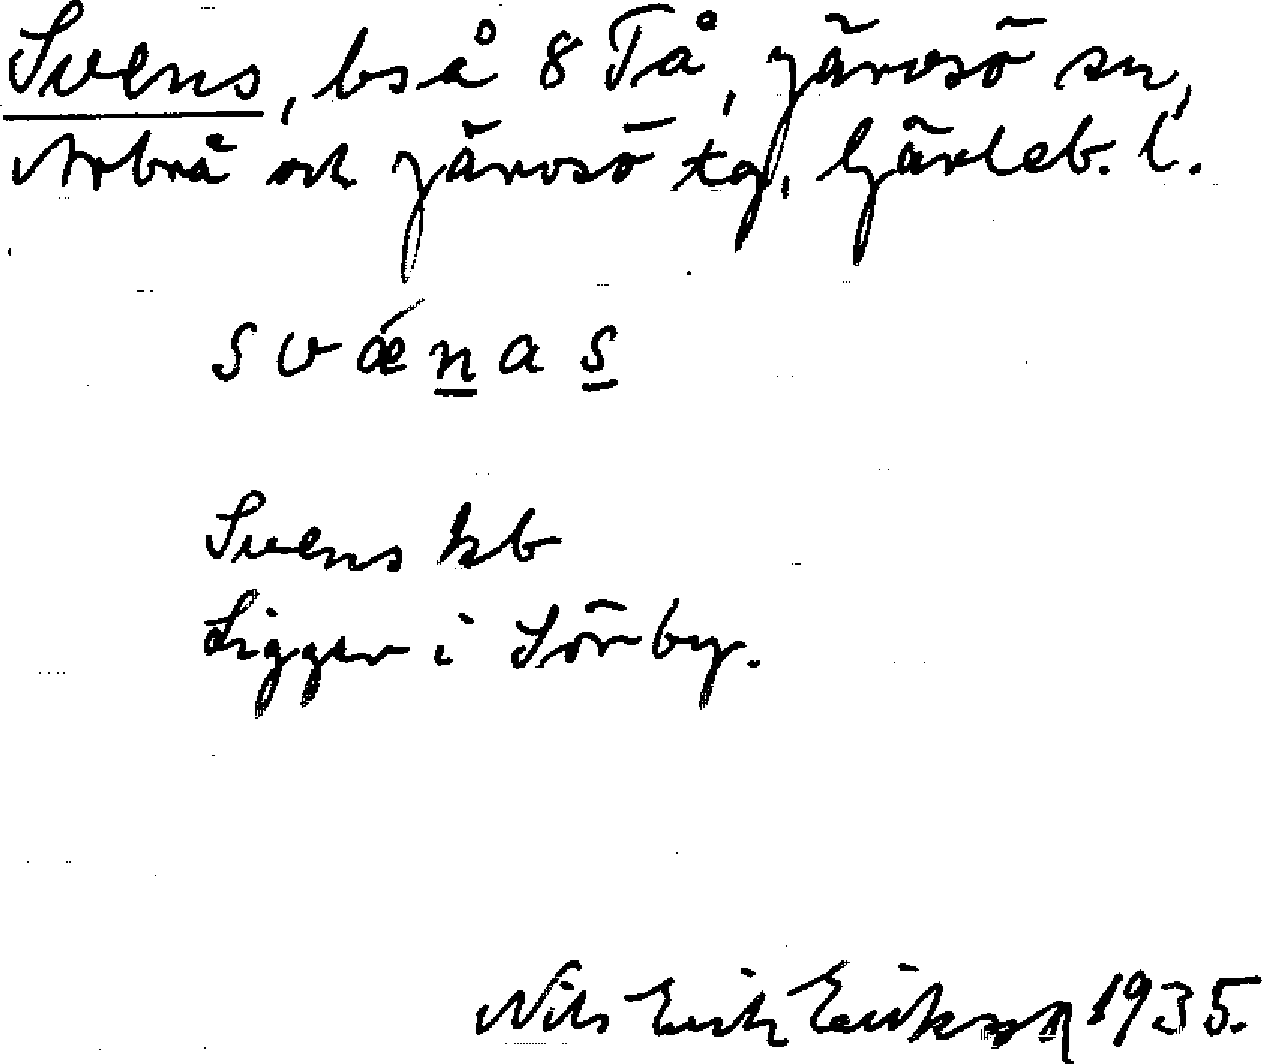 Svens, bs å 8 Tå, Järvsö sn,
Arbrå och Järvsö tg, Gävleb. l.
svǽnas
Svens kb
Ligger i Sörby.
Nils Erik Eriksson 1935.